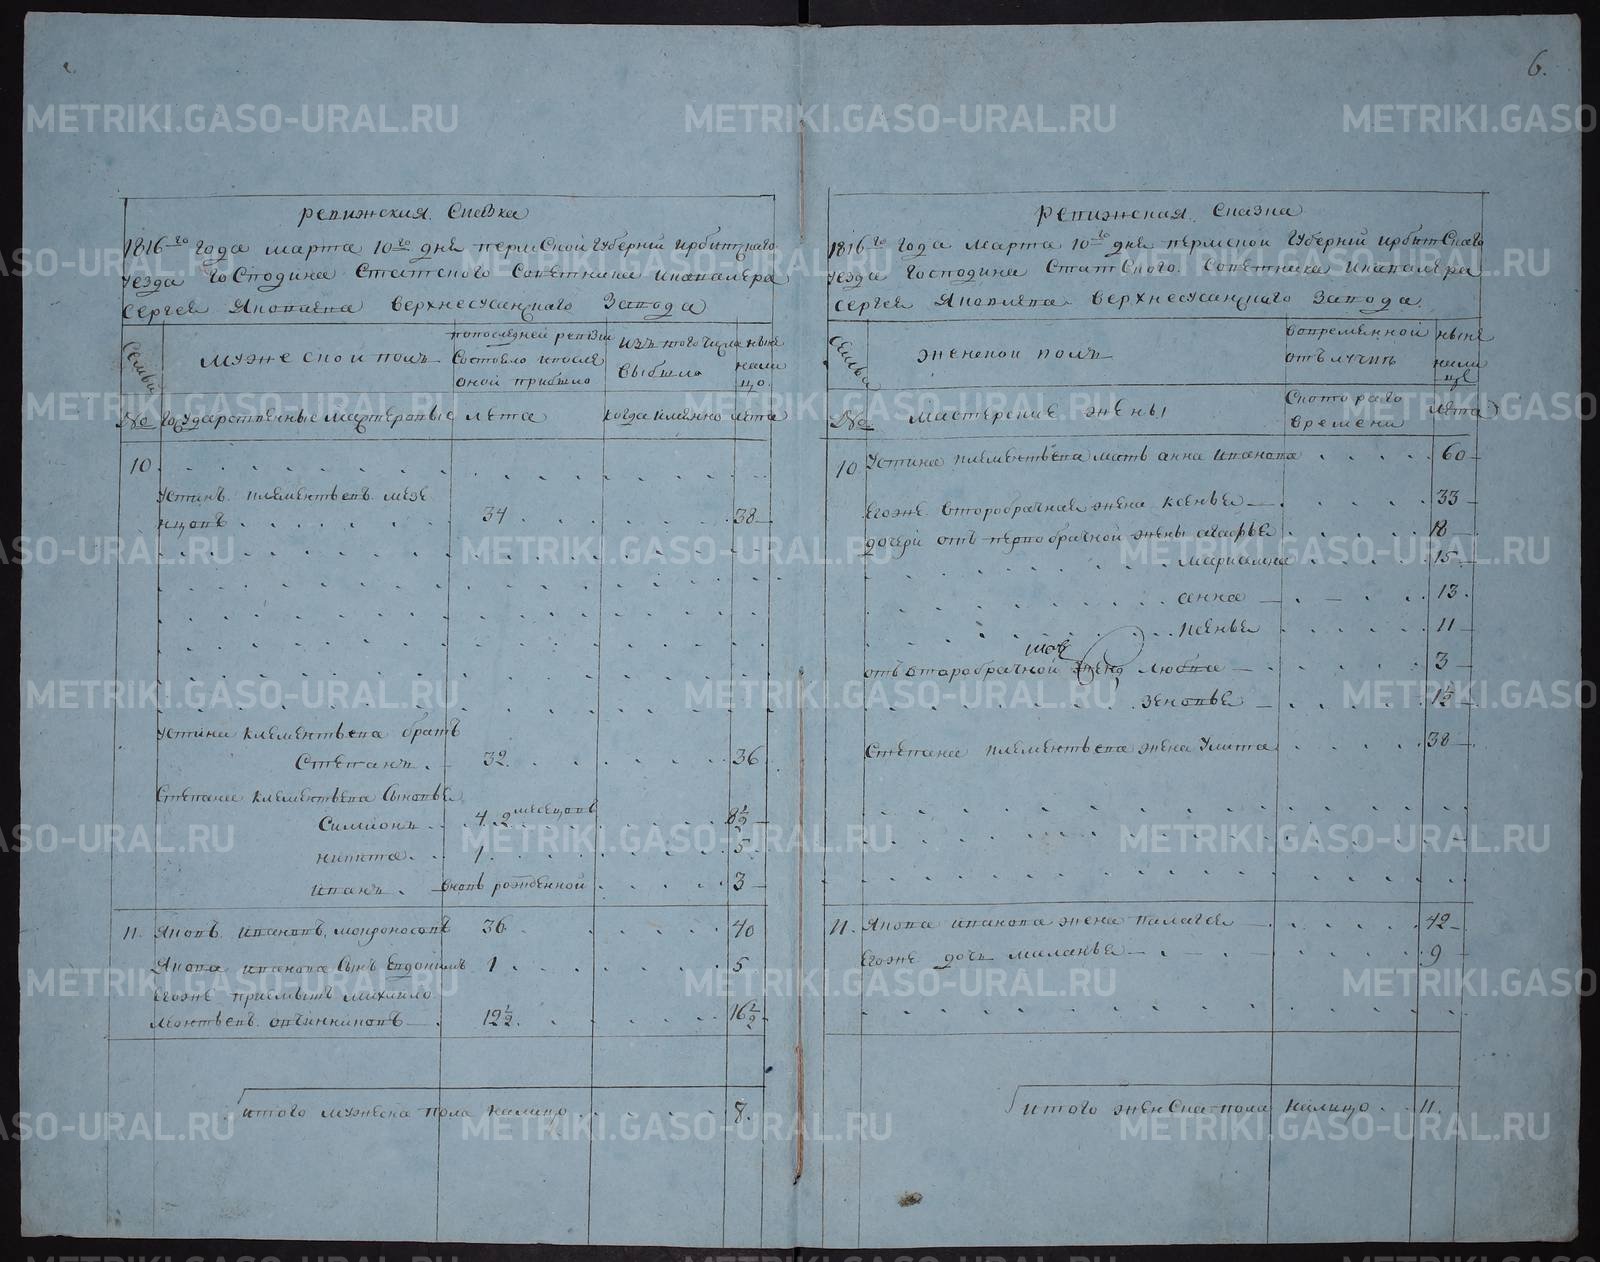 6.
Ревижская Сказка
1816го года марта 10го дня пермской Губернiи ирбитскаго
уезда Господина Статского Советника икавалера
Сергея Яковлева верхнесусанского Завода
Семьи
мужеской полъ
попоследней ревизии
Состояло ипосле
оной прибыло
изъ того числа
выбыло
ныне
нали
цо
№ Государственные мастеровые
лета
когда именно
лета
10
Устинъ клементьевъ мезе
нцовъ 34 38
Устина клементьева братъ
Степанъ 32 36
Степана клементьева Сыновья
Симионъ 4. 2 месецовъ 8½
никита 1 5
иванъ вновь рожденной 3
11. Яковъ ивановъ мокроносовъ 36 40
Якова иванова Сынъ Евдокимъ 1 5
Егоже приемышъ михайло
леонтьевъ овчинниковъ 12½ 16½
итого мужеска пола налицо 8.
Ревижская Сказка
1816го года марта 10го дня пермской Губернiи ирбитскаго
уезда Господина Статского Советника икавалера
Сергея Яковлева верхнесусанскаго Завода
Семья
женской полъ
вовременной
отълучке
ныне
нали
це
№ мастерские жены
Скоторого
времени
лета
10 Устина клементьева мать анна иванова 60
Егоже второбрачная жена ксенья 33
дочери отъ первобрачной жены агафья 18
мариамна 15
анна 13
ксенья 11
отъ второбрачной жены любва 3
зеновья 1½
Степана клементьева жена Улита 38
11. Якова иванова жена палагея 42
Егоже дочь маланья 9
итого женска пола налицо 11.
METRIKI.GASO-URAL.RU